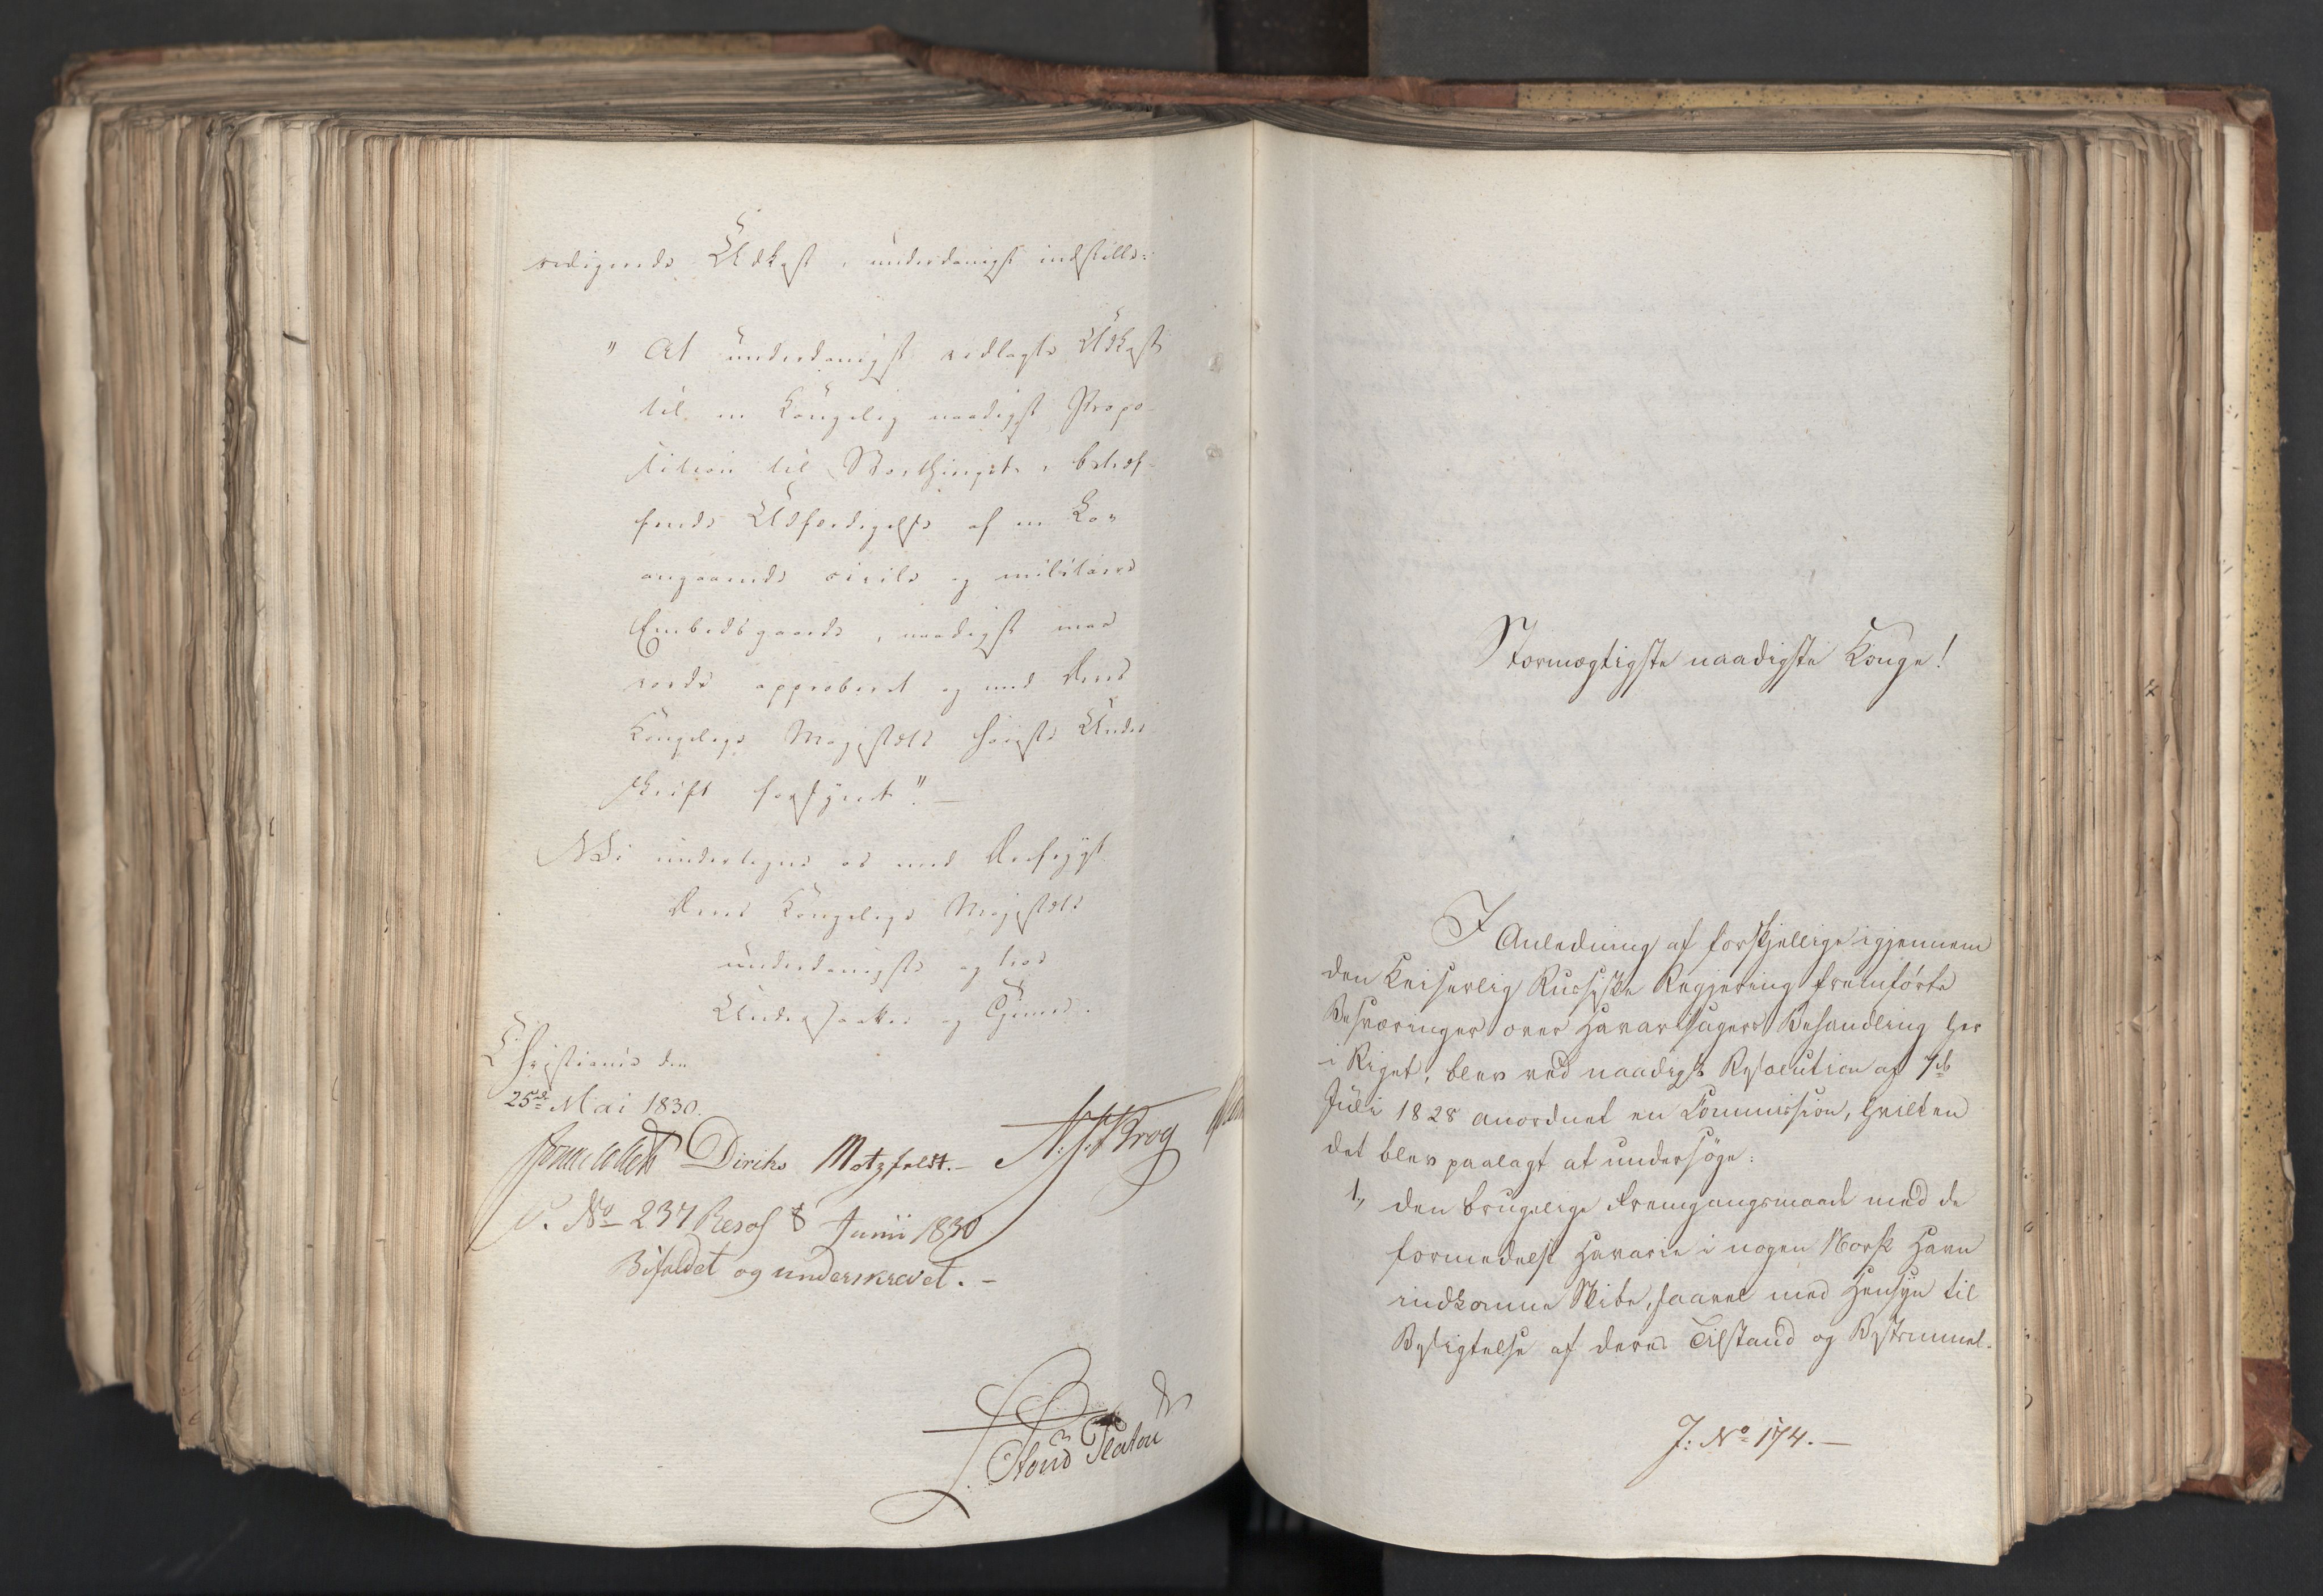 redigerede Udkast, underdanigst indstille:
" At underdanigst vedlagte Udkast
til en Kongelig naadigst Propo-
sition til Storthinget, betræf-
fende Udfærdigelse af en Lov
angaaende civile og militaire
Embedsgaarde, naadigst maa
vorde approberet og med Deres
Kongelige Majestæts høieste Under-
skrift forsynet". —
Vi undertegne os med Ærefrygt
Deres Kongelige Majestæts
underdanigste og troe
Undersaatter og Tjenere.
Christiania den
25de Mai 1830.
Jonas Collett Diriks Motzfeldt.- N. J. Krog
S. No 237 Resol 8 Junii 1830
Bifaldet og underskrevet. -
Stoud Platou
Stormægtigste naadigste Konge!
I Anledning af forskjellige igjennem
den Keiserlig Russiske Regjering fremførte
Besværinger over Havarisagers Behandling her
i Riget, blev ved naadigst Resolution af 7de
Juli 1828 anordnet en Commission, hvilken
det blev paalagt at undersøge:
1, den brugelige Fremgangsmaade med de
formedelst Havarie i nogen Norsk Havn
indkomne Skibe, saavel med Hensyn til
Besigtelse af deres Tilstand og Bestemmel-
J: No 174. —